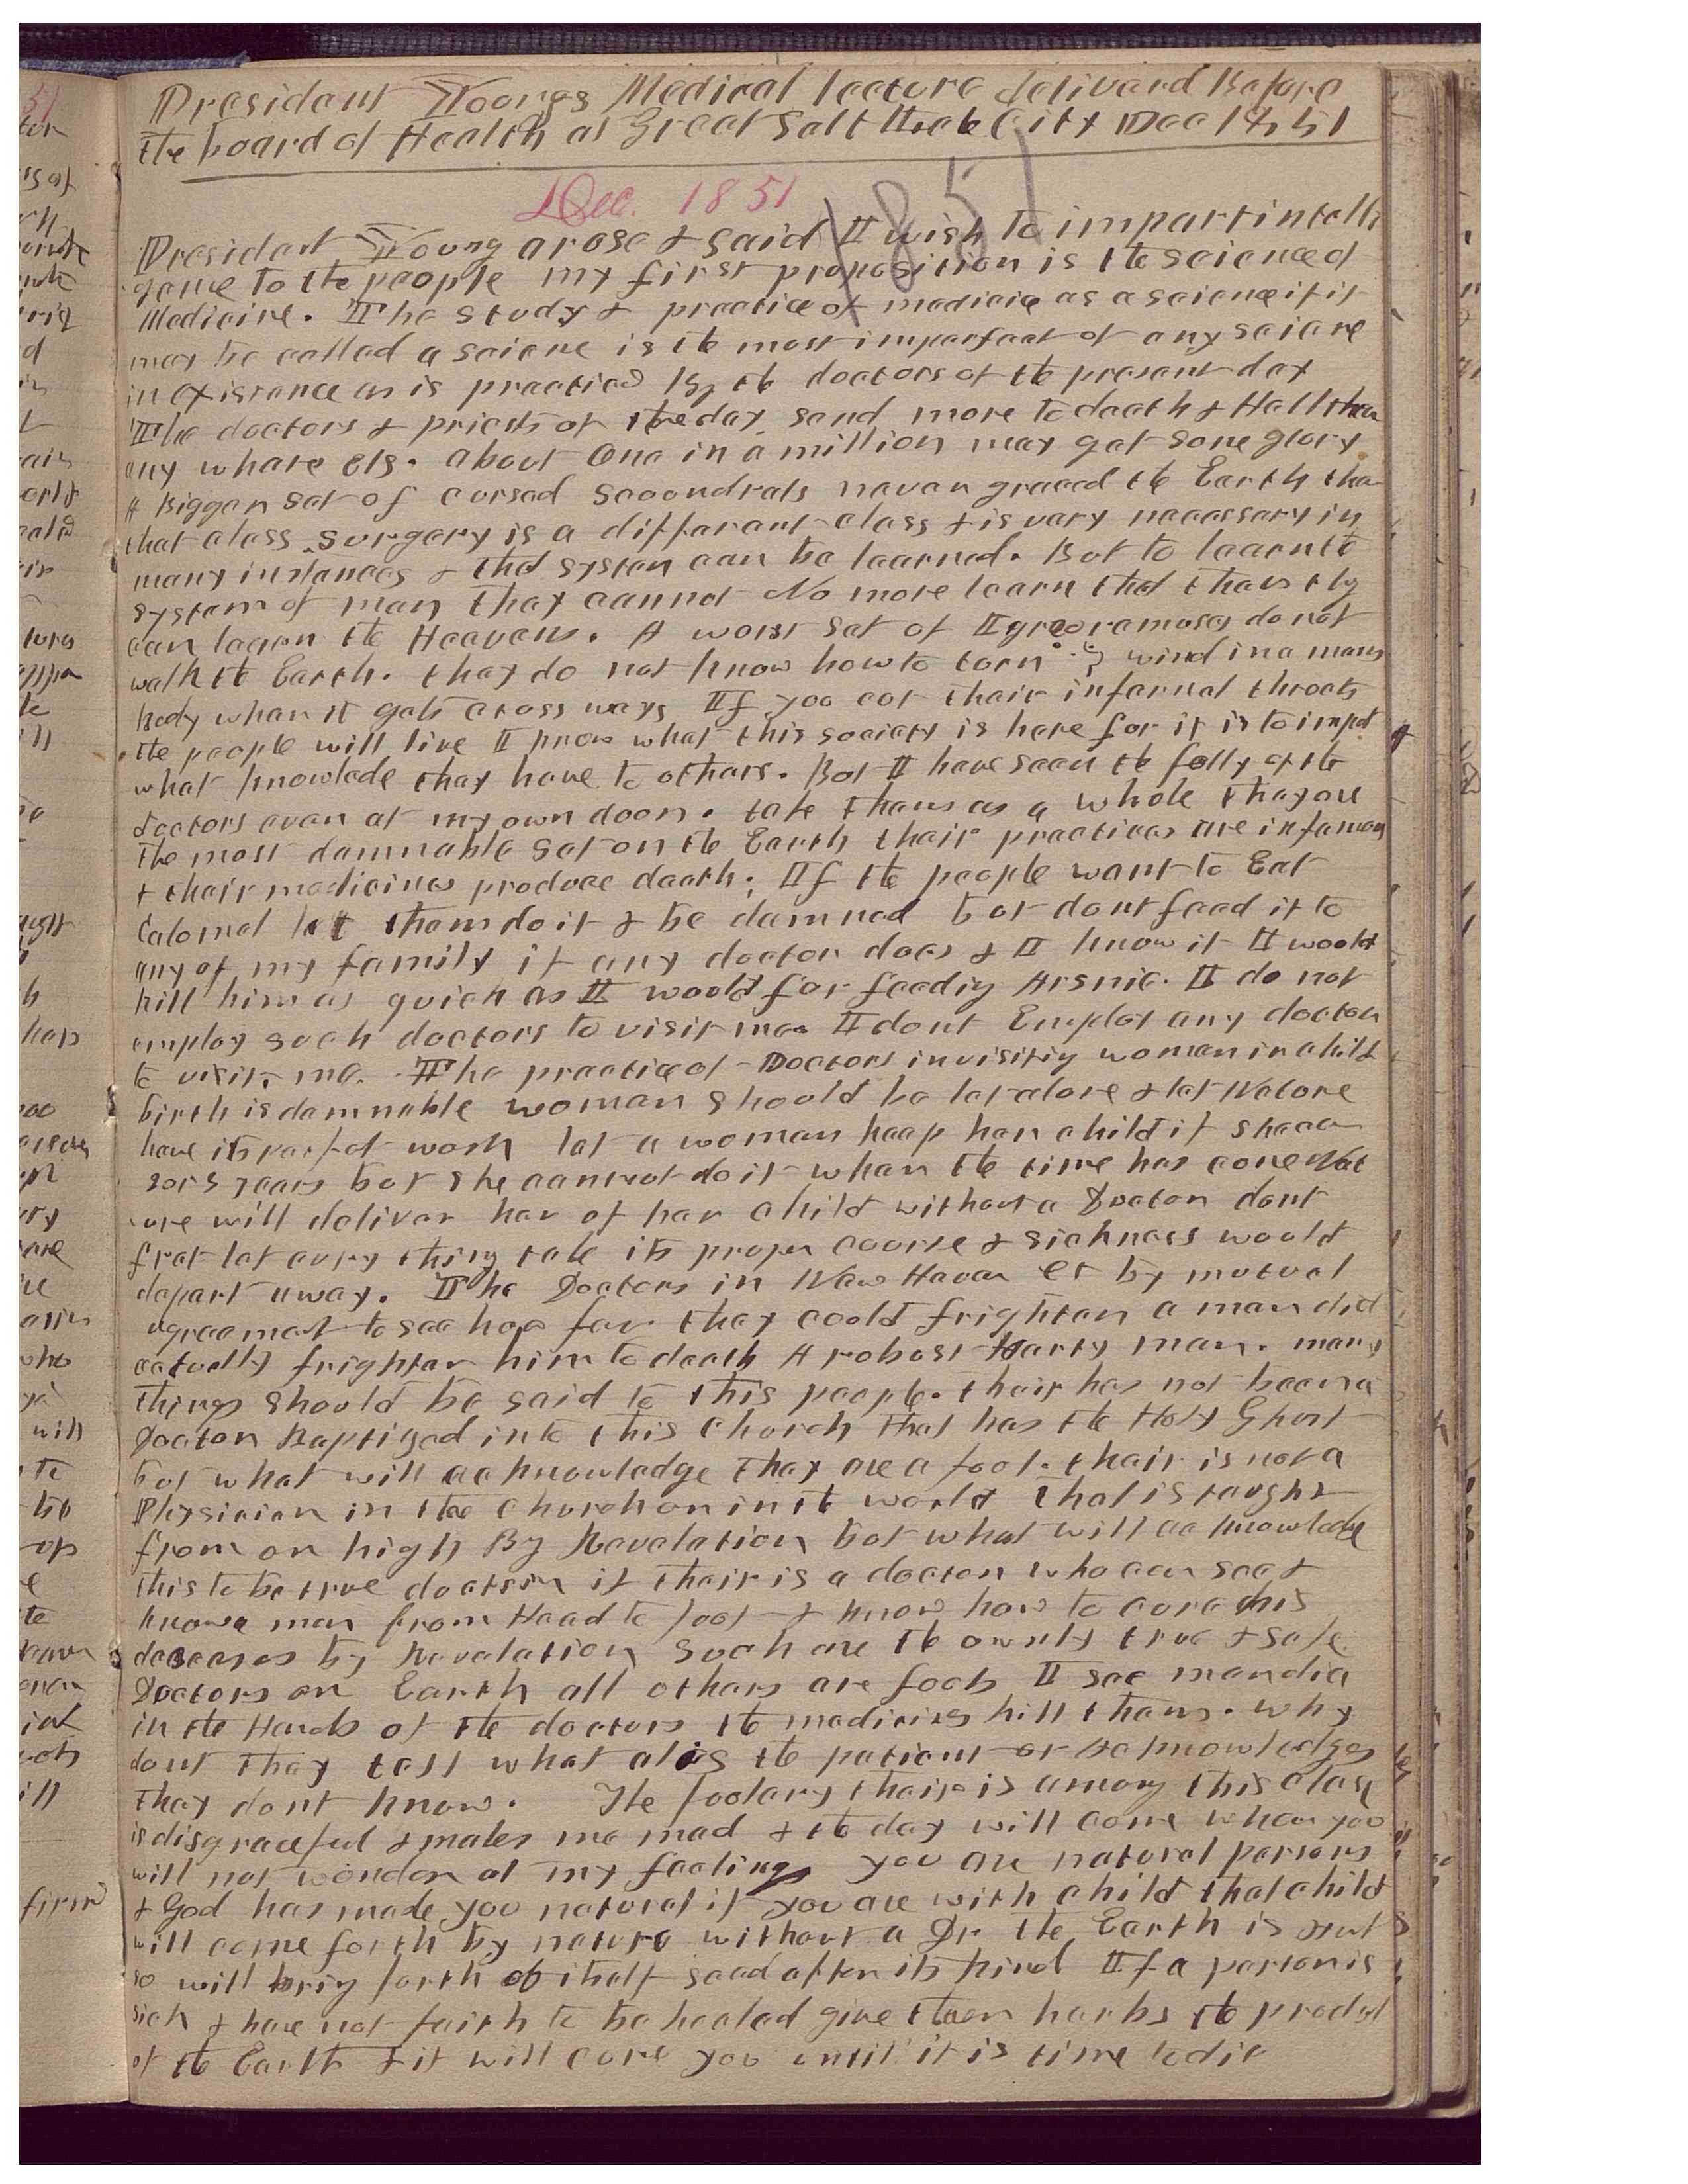 President Youngs Medical lecture delivered Before
the board of Health at Great Salt Lake City Dec 1851
Dec. 1851
1851
President Young arose & said I wish to impart intelli
gence to the people my first proposition is the science of
Medicine. The study & practice of medicine as a science if it
may be called a science is the most imperfect of any science
in existance as is practiced By the doctors of the present day
The doctors & priests of the day send more to death & Hell than
any whare els. about One in a million may get some glory
A Bigger set of cursed scoondrels never graced the Earth than
that class surgery is a different class & is very necessary in
many instances & that system can be learned. But to learn the
system of man they cannot No more learn that than they
can learn the Heavens. A worst set of Igrooramuses do not
walk the Earth. they do not know how to turn wind in a mans
Body when it gets cross ways If you cut their infernal throats
the people will live I know what this society is here for it is to impt
what knowlede they have to others. But I have seen the folly of the
doctors even at my own door. take them as a whole they are
the most damnable set on the Earth their practices are infamous
& their medicines produce death. If the people want to Eat
Calomel let them do it & be damned but dont feed it to
any of my family if any doctor does & I know it I would
kill him as quick as I would for feeding Arsnic. I do not
employ such doctors to visit me I dont Employ any doctor
to visit me. The practice of Doctors in visiting women in child
birth is damnable woman should be let alone & let Nature
have its perfect work let a woman keep her child if she can
2 or 3 years but she cannot do it when the time has come Nat
ure will deliver her of her child without a Doctor dont
fret let evry thing take its proper course & sickness would
depart away. The Doctors in New Haven Ct by mutual
agreement to see how far they could frighten a man did
actually frighten him to death A robust Harty man. many
things should be said to this people. their has not been a
Doctor Baptized into this Church that has the Holy Ghost
but what will acknowledge they are a fool. their is not a
Physician in the Church or in the world that is taught
from on high By Revelation but what will acknowledge
this to be true doctrin if their is a doctor who can see &
know a man from Head to foot & know how to cure his
deseases by Revelation such are the ownly true & safe
Doctors on Earth all others are fools I see men die
in the Hands of the doctors the medicines kill them. why
dont they tell what ales the patient or acknowledge
they dont know. The foolery their is among this class
is disgraceful & makes me mad & the day will come when you
will not wonder at my feelings you are natural persons
& God has made you natural if you are with child that child
will come forth by nature without a Dr the Earth is
so will bring forth of itself seed after its kind If a person is
sick & have not faith to be healed give them herbs the product
of the Earth & it will cure you until it is time to die